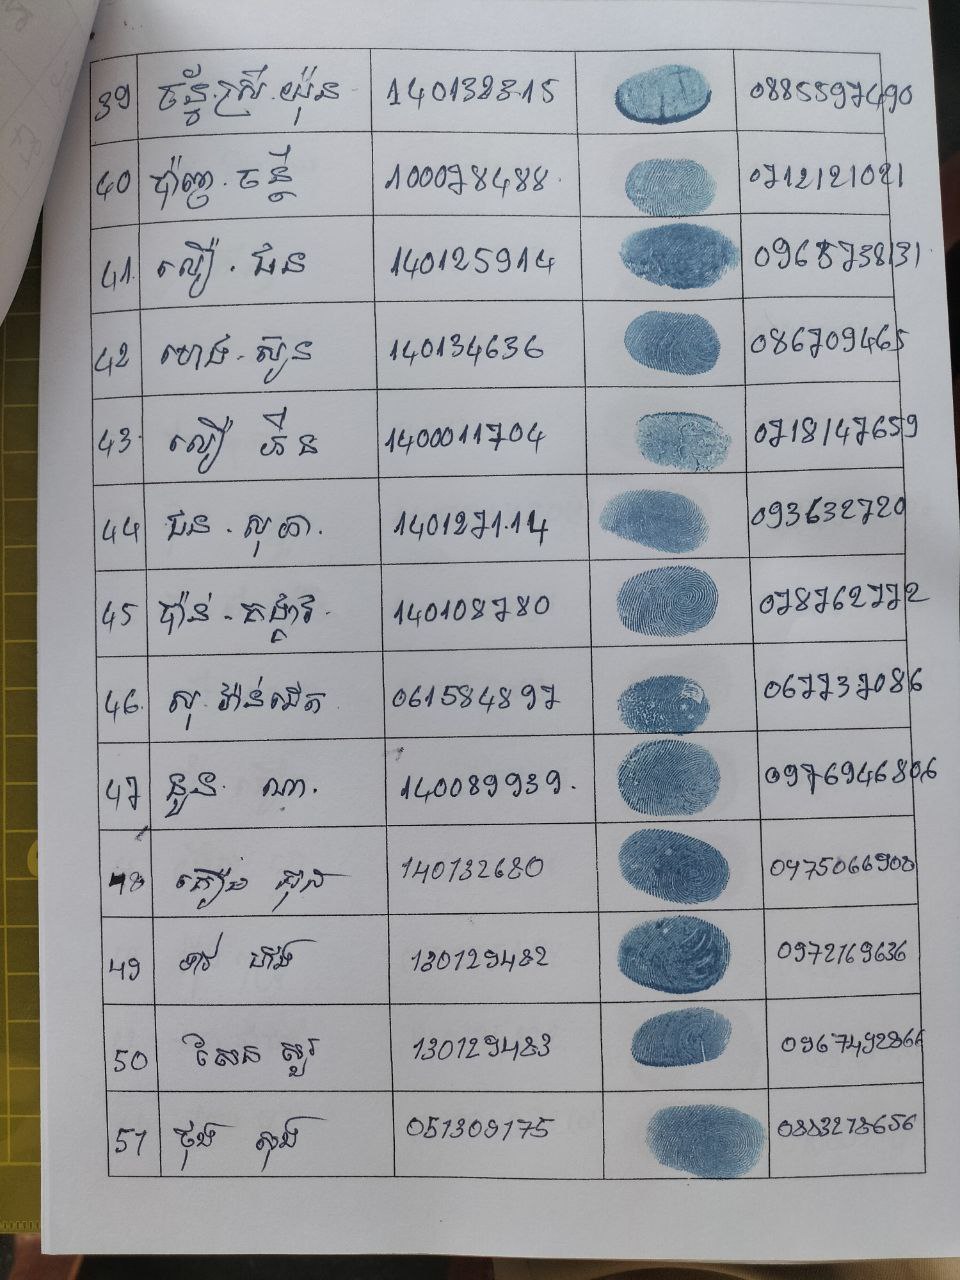 39 ច័ន្ទ ស្រី យ៉ុន 140132315 0885597490
40 ប៉ាញ ចន្ធី 100078488 0712121021
41 លឿ ជន 140125914 0968738131
42 ហេង ស៊ូន 140134636 086709465
43 លឿ ហ៊ីន 1400011704 0718147659
44 ជន សុភា 140127114 093632720
45 ប៉ាន់ 140108780 078762772
46 សុ 061584897 067737086
47 នួន ណា 140089939 0976946806
48 140132680 0975066908
49 ចាវ ហ៊ង 130129482 0972169636
50 សែន សួរ 130129483 0967492866
51 ថុង សុង 051309175 0883278656